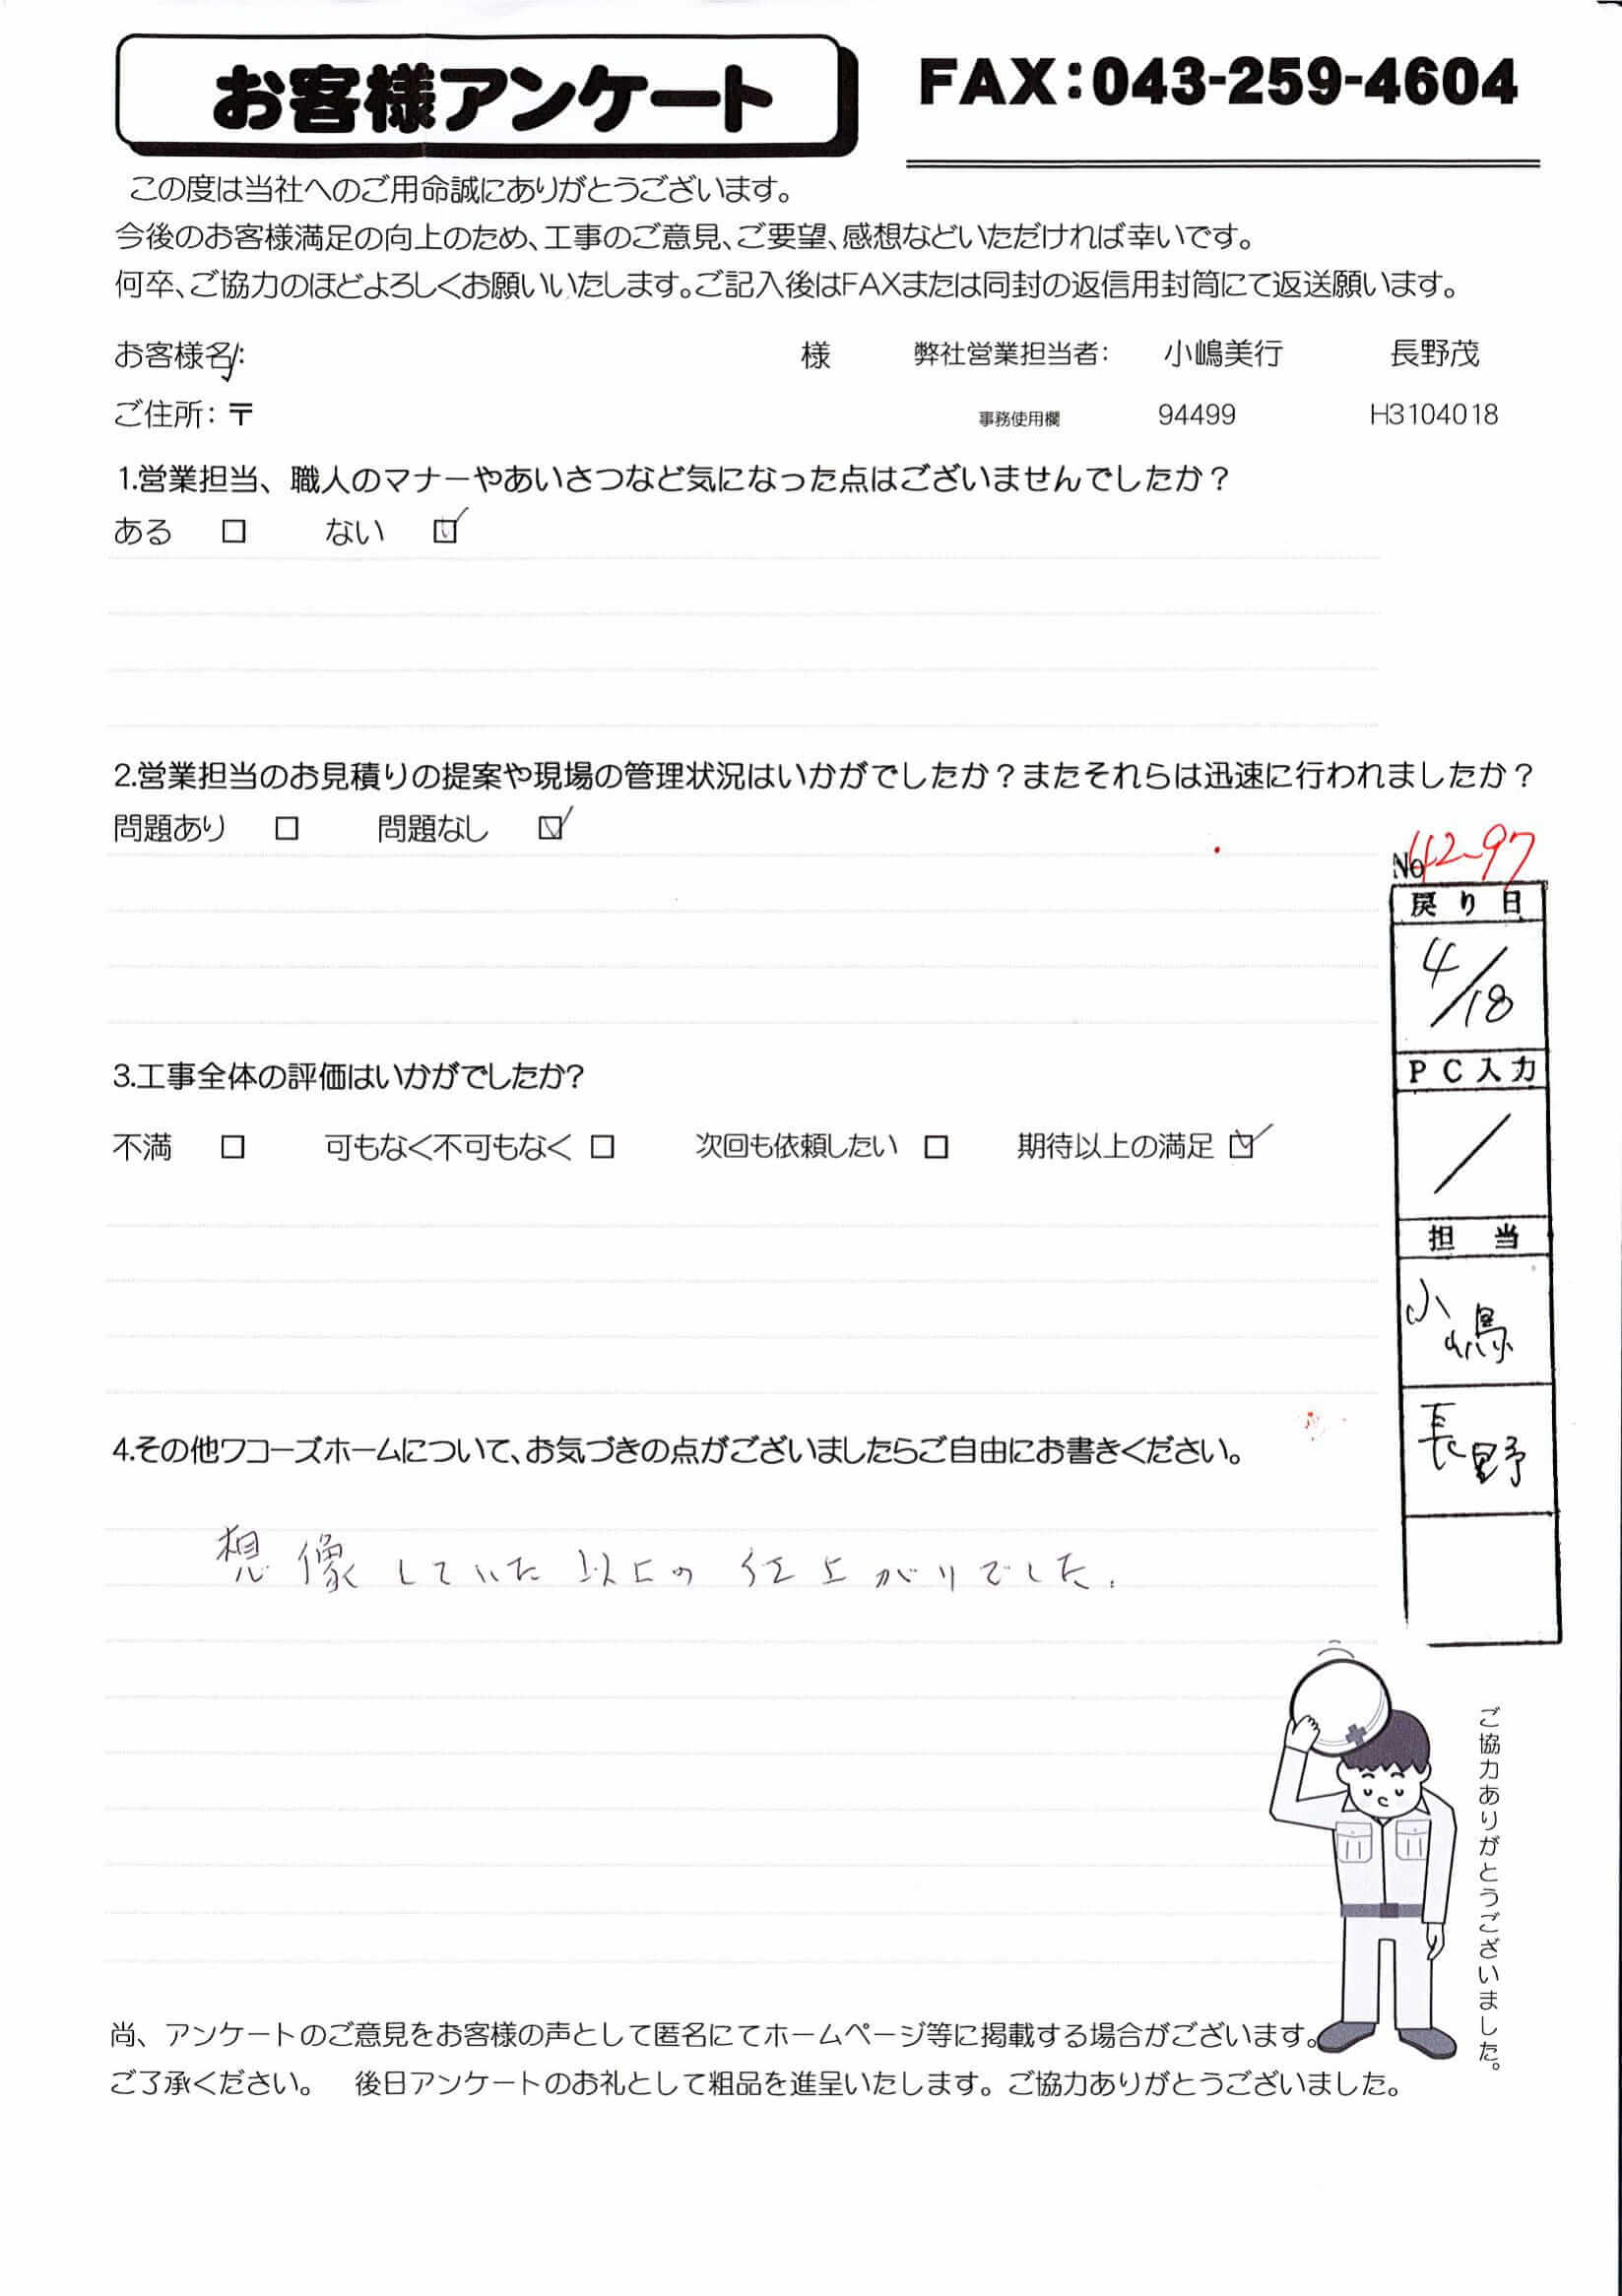 お客様アンケート
FAX:043-259-4604
この度は当社へのご用命誠にありがとうございます。
今後のお客様満足の向上のため、工事のご意見、ご要望、感想などいただければ幸いです。
何卒、ご協力のほどよろしくお願いいたします。ご記入後はFAXまたは同封の返信用封筒にて返送願います。
お客様名: 様 弊社営業担当者: 小嶋美行 長野茂
ご住所:〒 事務使用欄 94499 H3104018
1.営業担当、職人のマナーやあいさつなど気になった点はございませんでしたか?
ある □ ない ☑
2.営業担当のお見積りの提案や現場の管理状況はいかがでしたか?またそれらは迅速に行われましたか?
問題あり □ 問題なし ☑
No 42-97
戻り日
4/18
PC入力
/
担当
小嶋
長野
3.工事全体の評価はいかがでしたか?
不満 □ 可もなく不可もなく □ 次回も依頼したい □ 期待以上の満足 ☑
4.その他ワコーズホームについて、お気づきの点がございましたらご自由にお書きください。
想像していた以上の仕上がりでした.
ご協力ありがとうございました。
尚、アンケートのご意見をお客様の声として匿名にてホームページ等に掲載する場合がございます。
ご了承ください。 後日アンケートのお礼として粗品を進呈いたします。ご協力ありがとうございました。